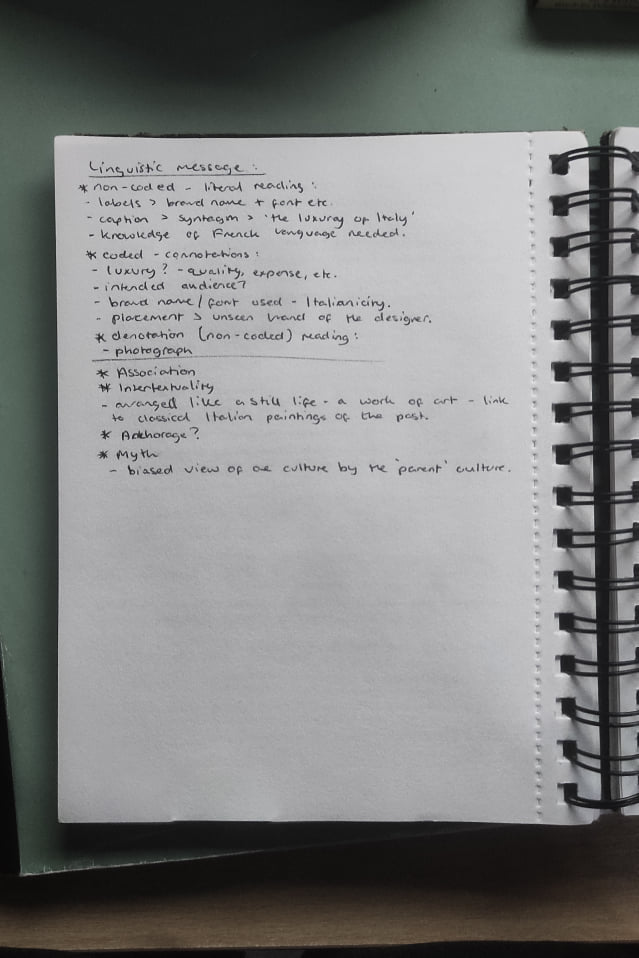 Linguistic message :
* non-coded - literal reading :
- labels > brand name + font etc.
- caption > syntagm > 'the luxuray of Italy'
- knowledge of French language needed.
* coded - connotations :
- luxury? - quality, expense, etc.
- intended audience?
- brand name/font used - Italianicity.
- placement > unseen hand of the designer.
* denotation (non-coded) reading :
- photograph
* Association
* Intertextuality
- arranged like a still life - a work of art - link
to classical Italian paintings of the past.
* Anchorage?
* Myth
- biased view of one culture by the 'parent' culture.